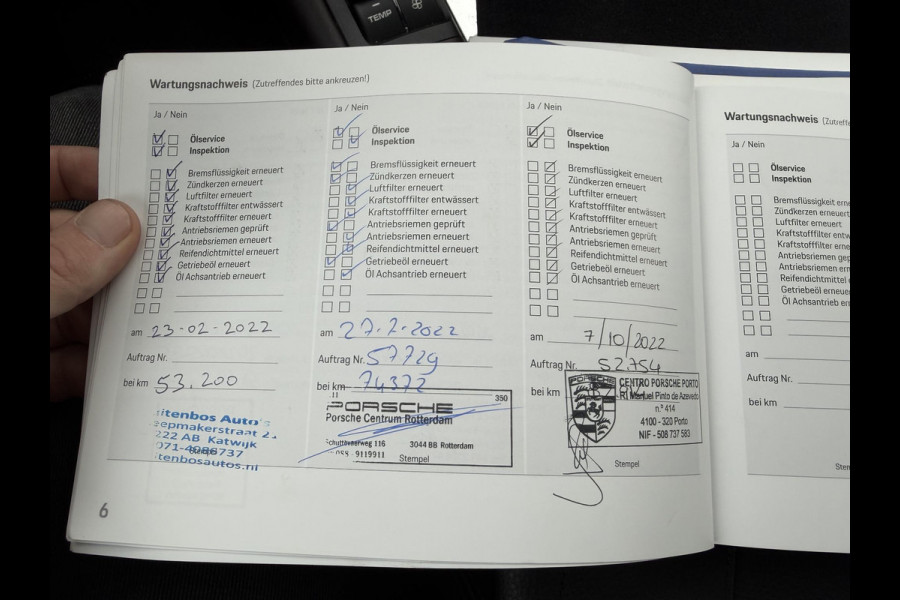 TEMP
Wartungsnachweis (Zutreffendes bitte ankreuzen!)
Ja / Nein
Ölservice
Inspektion
Bremsflüssigkeit erneuert
Zündkerzen erneuert
Luftfilter erneuert
Kraftstofffilter entwässert
Kraftstofffilter erneuert
Antriebsriemen geprüft
Antriebsriemen erneuert
Reifendichtmittel erneuert
Getriebeöl erneuert
Öl Achsantrieb erneuert
am 23-02-2022
Auftrag Nr.
bei km 53.200
itenbos Auto's
epmakerstraat 2
222 AB Katwijk
071-4086737
itenbosautos.nl
6
Ja / Nein
Ölservice
Inspektion
Bremsflüssigkeit erneuert
Zündkerzen erneuert
Luftfilter erneuert
Kraftstofffilter entwässert
Kraftstofffilter erneuert
Antriebsriemen geprüft
Antriebsriemen erneuert
Reifendichtmittel erneuert
Getriebeöl erneuert
Öl Achsantrieb erneuert
am 27.2.2022
Auftrag Nr. 57729
bei km 74372
350
PORSCHE
Porsche Centrum Rotterdam
116 3044 BB Rotterdam
9119911
Stempel
Ja / Nein
Ölservice
Inspektion
Bremsflüssigkeit erneuert
Zündkerzen erneuert
Luftfilter erneuert
Kraftstofffilter entwässert
Kraftstofffilter erneuert
Antriebsriemen geprüft
Antriebsriemen erneuert
Reifendichtmittel erneuert
Getriebeöl erneuert
Öl Achsantrieb erneuert
am 7/10/2022
Auftrag Nr. 52.754
bei km
PORSCHE
CENTRO PORSCHE PORTO
R. Manuel Pinto de Azevedo
n.º 414
4100 - 320 Porto
NIF - 508 737 583
Stempel
Wartungsnachweis (Zutreffe
Ja / Nein
Ölservice
Inspektion
Bremsflüssigkeit ern
Zündkerzen erneuert
Luftfilter erneuert
Kraftstofffilter entw
Kraftstofffilter erne
Antriebsriemen gep
Antriebsriemen ern
Reifendichtmittel e
Getriebeöl erneuer
Öl Achsantrieb erne
am
Auftrag Nr.
bei km
Stem